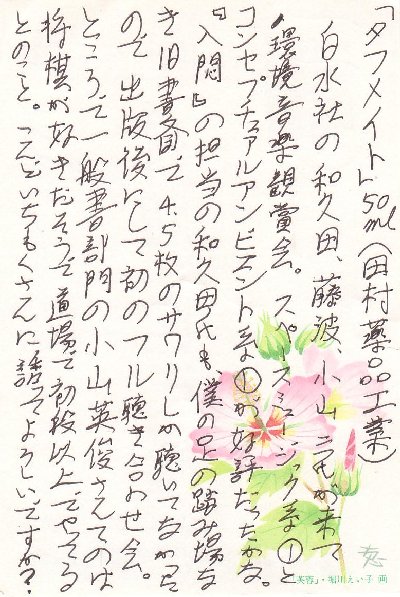 「タフメイト」50ml（田村薬品工業）
白水社の和久田、藤波、小山三氏が来て
環境音楽観賞会。スペースミュージック系①と
コンセプチュアルアンビエント系①が好評だったかな。
『入門』の担当の和久田氏も、僕の足の踏み場な
き旧書斎で4.5枚のサワリしか聴いてなかった
ので出版後にして初のフル聴き合わせ会。
ところで一般書部門の小山英俊さんてのは
将棋が好きだそうで道場で初段以上でやってる
とのこと。こんどいちもくさんに話してよろしいですか？
「芙蓉」・堀川えい子 画